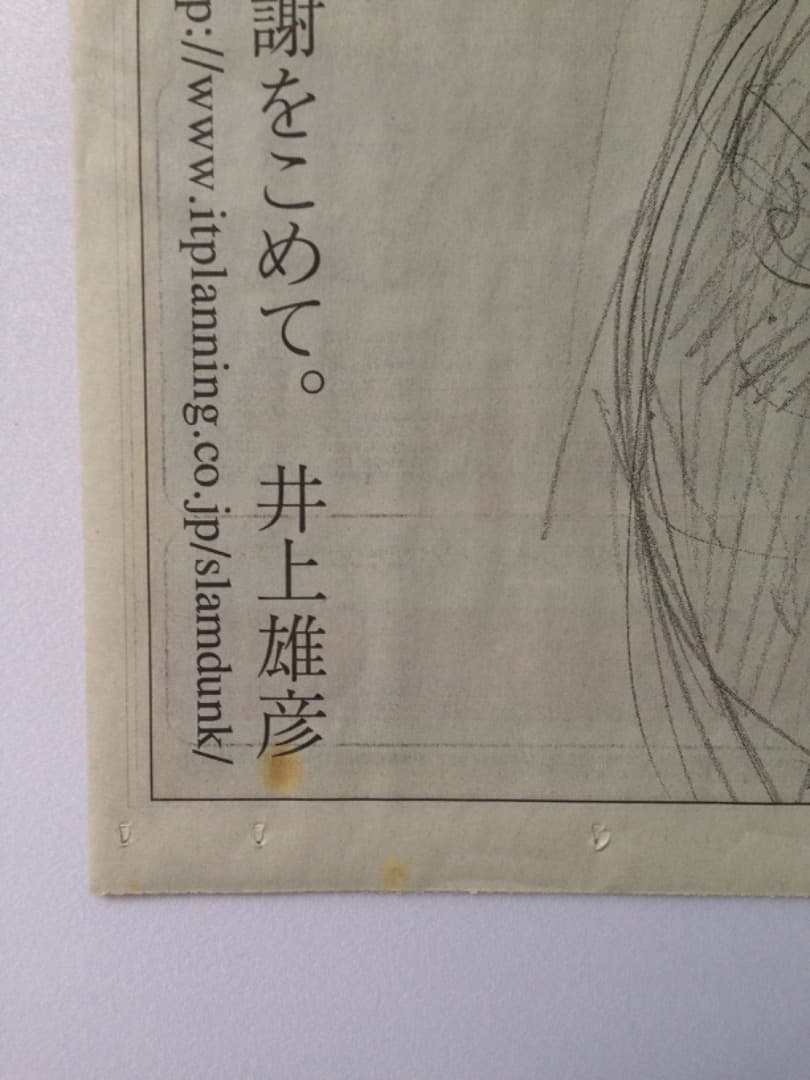 謝をこめて。 井上雄彦
p://www.itplanning.co.jp/slamdunk/